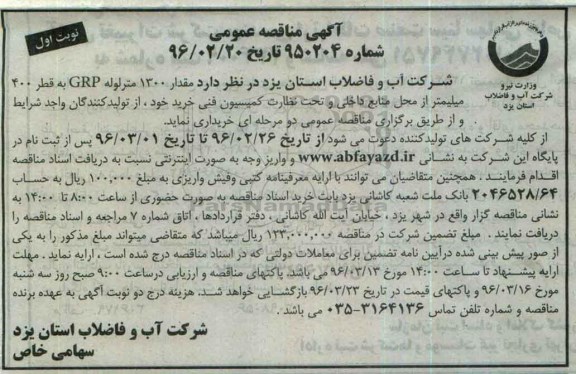 آگهی مناقصه عمومی
نوبت اول
شماره ۹۵۰۲۰۴ تاریخ ۹۶/۰۲/۲۰
وزارت نیرو
شرکت آب و فاضلاب
استان یزد
شرکت آب و فاضلاب استان یزد در نظر دارد مقدار ۱۳۰۰ مترلوله GRP به قطر ۴۰۰
میلیمتر از محل منابع داخلی و تحت نظارت کمیسیون فنی خرید خود ، از تولیدکنندگان واجد شرایط
و از طریق برگزاری مناقصه عمومی دو مرحله ای خریداری نماید.
از کلیه شرکت های تولیدکننده دعوت می شود از تاریخ ۹۶/۰۲/۲۶ تا تاریخ ۹۶/۰۳/۰۱ پس از ثبت نام در
پایگاه این شرکت به نشانی www.abfayazd.ir و واریز وجه به صورت اینترنتی نسبت به دریافت اسناد مناقصه
اقدام فرمایند . همچنین متقاضیان می توانند با ارایه معرفینامه کتبی وفیش واریزی به مبلغ ۱۰۰,۰۰۰ ریال به حساب
۲۰۴۶۵۲۸/۶۴ بانک ملت شعبه کاشانی یزد بابت خرید اسناد مناقصه به صورت حضوری از ساعت ۸:۰۰ تا ۱۴:۰۰ به
نشانی مناقصه گزار واقع در شهر یزد ، خیابان آیت الله کاشانی ، دفتر قراردادها ، اتاق شماره ۷ مراجعه و اسناد مناقصه را
دریافت نمایند . مبلغ تضمین شرکت در مناقصه ۱۲۳,۰۰۰,۰۰۰ ریال میباشد که متقاضی میتواند مبلغ مذکور را به یکی
از صور پیش بینی شده درآیین نامه تضمین برای معاملات دولتی که در اسناد مناقصه درج شده است ، ارایه نماید . مهلت
ارایه پیشنهاد تا ساعت ۱۴:۰۰ مورخ ۹۶/۰۳/۱۳ می باشد. پاکتهای مناقصه و ارزیابی درساعت ۹:۰۰ صبح روز سه شنبه
مورخ ۹۶/۰۳/۱۶ و پاکتهای قیمت در تاریخ ۹۶/۰۳/۲۳ بازگشایی خواهد شد. هزینه درج دو نوبت آگهی به عهده برنده
مناقصه و شماره تلفن تماس ۳۱۶۴۱۳۶-۰۳۵ می باشد.
شرکت آب و فاضلاب استان یزد
سهامی خاص